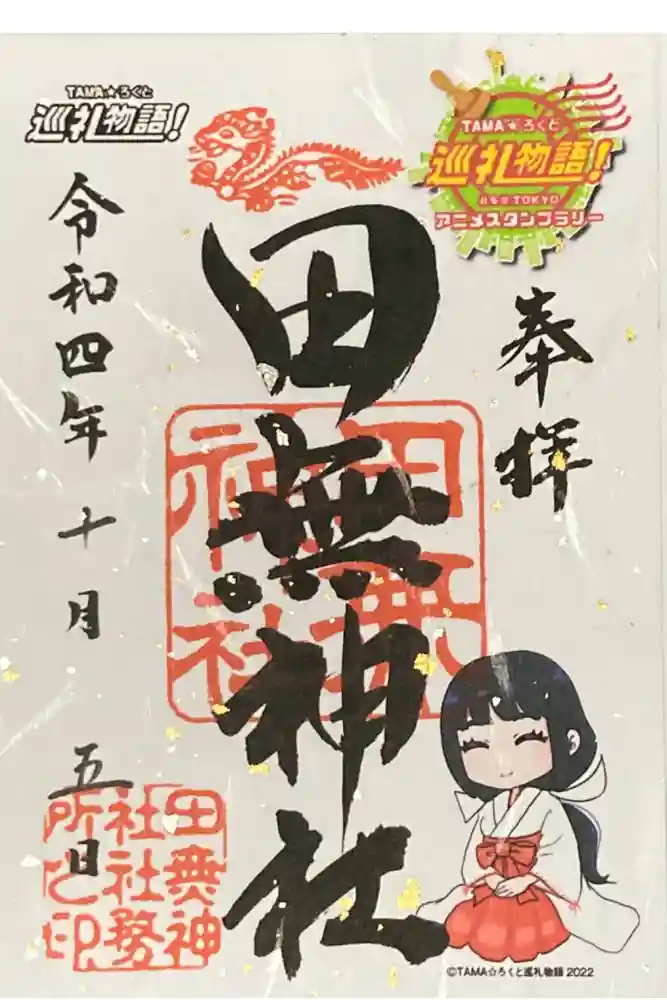 TAMA☆ろくと
巡礼物語!
TAMA☆ろくと
巡礼物語!
アニメスタンプラリー
奉拝
田無神社
田無
神社
令和四年十月五日
田無神
社社務
所之印
©TAMA☆ろくと巡礼物語 2022